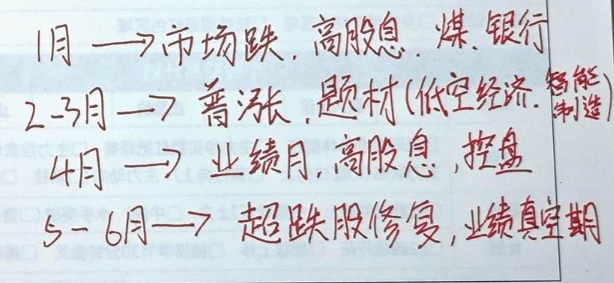 1月 → 市场跌. 高股息. 煤. 银行
2-3月 → 普涨. 题材(低空经济. 智能制造)
4月 → 业绩月, 高股息, 控盘
5-6月 → 超跌股修复, 业绩真空期